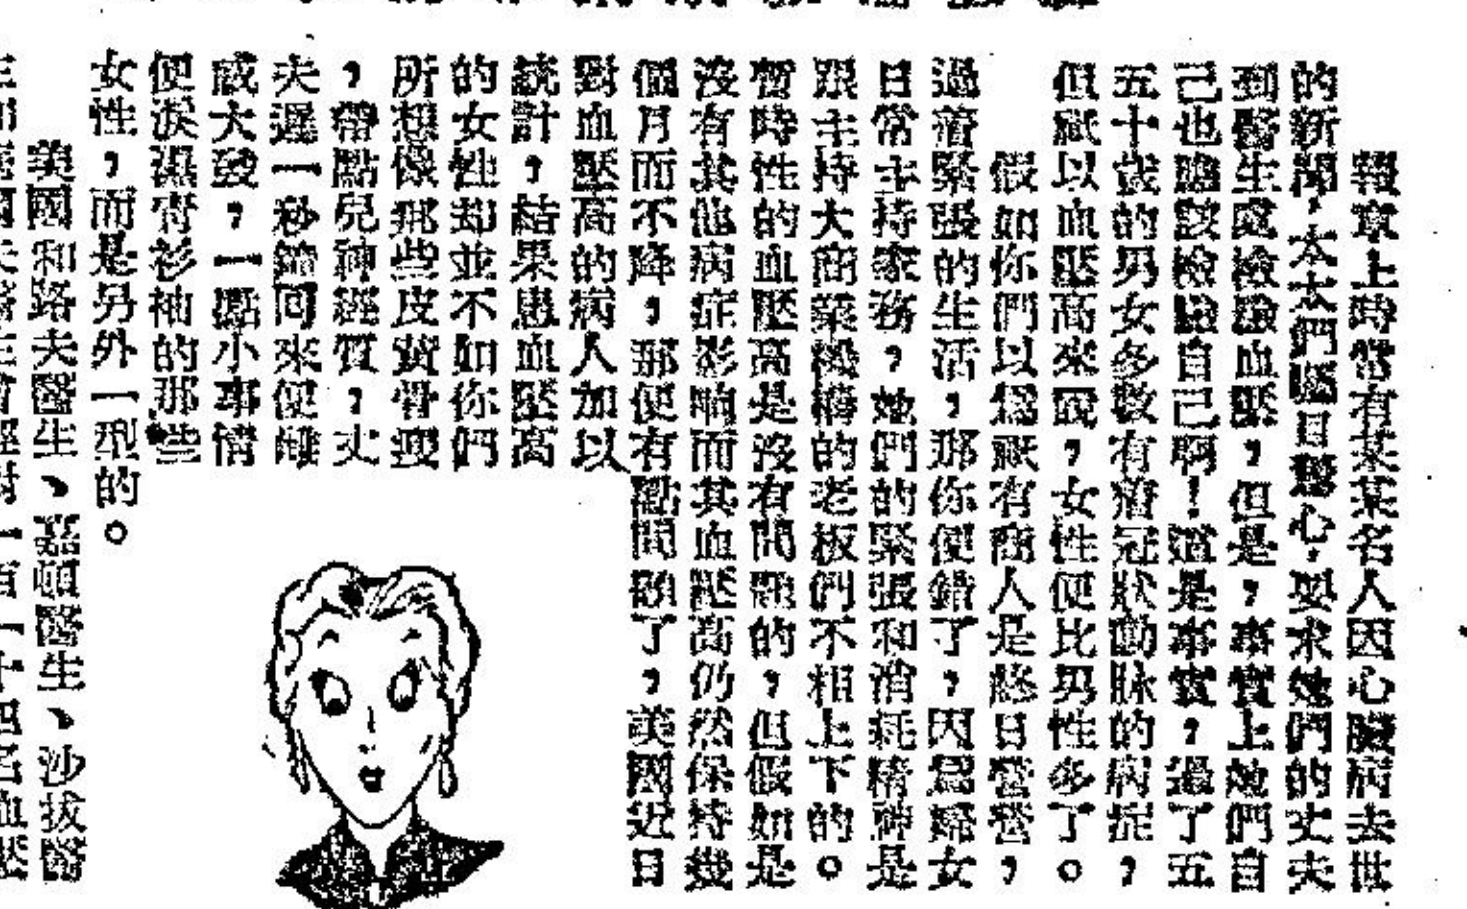 報章上時常有某某名人因心臟病去世
的新聞，太太們觸目驚心，要求她們的丈夫
到醫生處檢驗血壓，但是，事實上她們自
己也應該檢驗自己啊！這是事實，過了五
五十歲的男女多數有着冠狀動脉的病症，
但祇以血壓高來說，女性便比男性多了。
假如你們以爲祇有商人是終日營營，
過着緊張的生活，那你便錯了，因爲婦女
日常主持家務，她們的緊張和消耗精神是
跟主持大商業機構的老板們不相上下的。
暫時性的血壓高是沒有問題的，但假如是
沒有其他病症影响而其血壓高仍然保持幾
個月而不降，那便有點問題了，美國近日
對血壓高的病人加以
統計，結果患血壓高
的女性却並不如你們
所想像那些皮黃骨瘦
，帶點兒神經質，丈
夫遲一秒鐘回來便雌
威大發，一點小事情
便淚濕青衫袖的那些
女性，而是另外一型的。
美國和路夫醫生、嘉頓醫生、沙拔醫